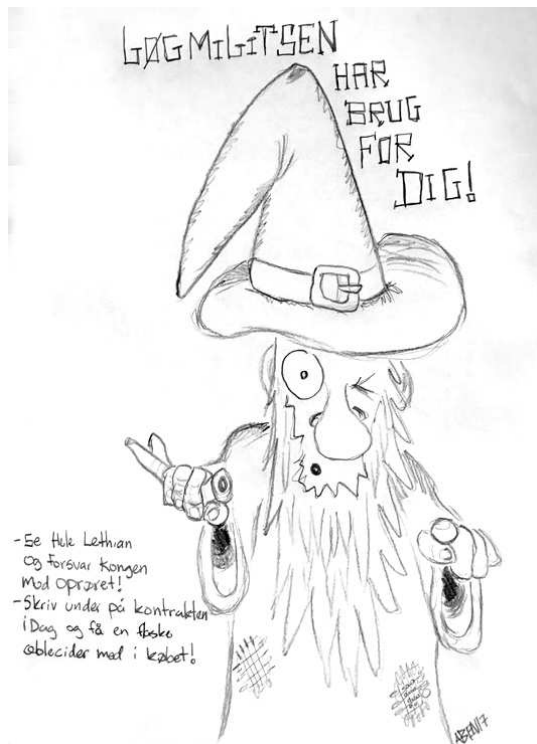 LØGMILITSEN
HAR
BRUG
FOR
DIG!
- Se Hele Lethian
og forsvar kongen
mod oprøret!
- Skriv under på kontrakten
iDag og få en flaske
æblecider med i købet!
ABEN17